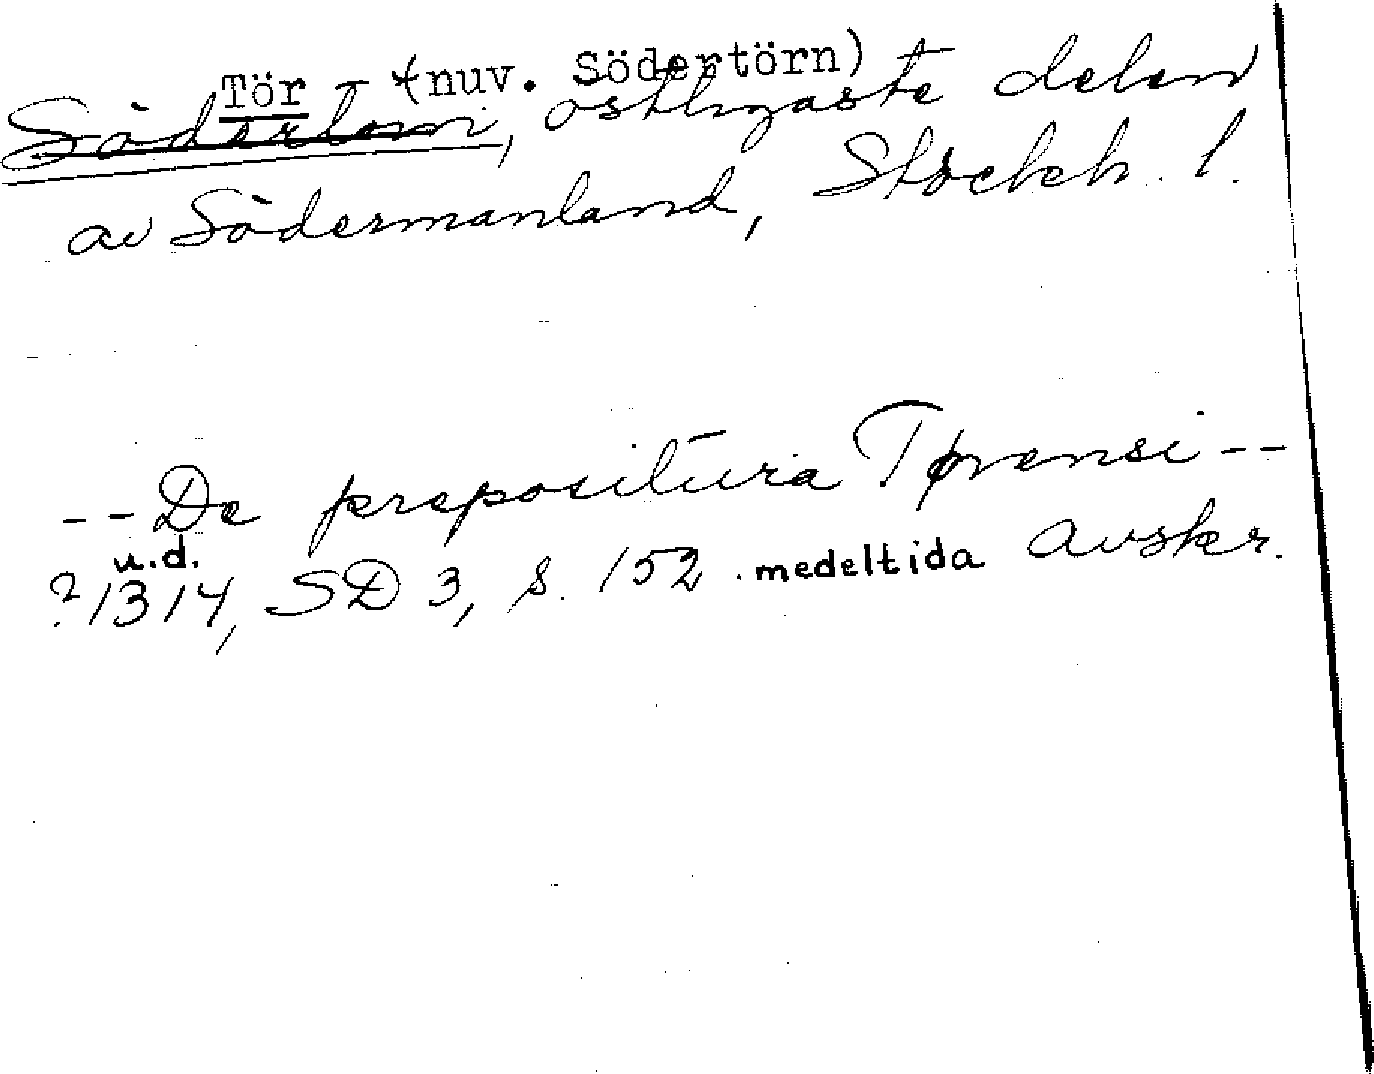 Tör - (nuv. Södertörn)
Södertörn, östligaste delen
av Södermanland, Stockh. l.
-- De prepositura Tørensi --
u.d.
? 1314, SD 3, s. 152. medeltida avskr.